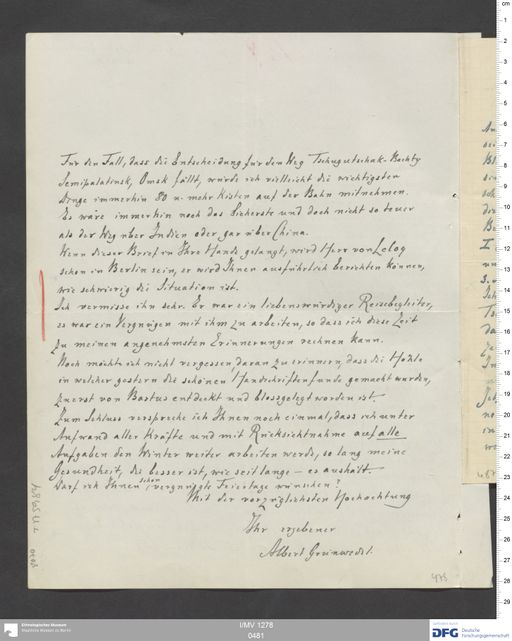 Für den Fall, dass die Entscheidung für den Weg Tschugutschak-Bachty
Semipalatinsk, Omsk fällt, würde ich vielleicht die wichtigsten
Dinge immerhin 80 u. mehr Kisten auf der Bahn mitnehmen.
Es wäre immerhin noch das Sicherste und doch nicht so teuer
als der Weg über Indien oder gar über China.
Wenn dieser Brief in Ihre Hände gelangt, wird Herr von Lecoq
schon in Berlin sein, er wird Ihnen ausführlich berichten können,
wie schwierig die Situation ist.
Ich vermisse ihn sehr. Er war ein liebenswürdiger Reisebegleiter,
es war ein Vergnügen mit ihm zu arbeiten, so dass ich diese Zeit
zu meinen angenehmsten Erinnerungen rechnen kann.
Noch möchte ich nicht vergessen, daran zu erinnern, dass die Höhle
in welcher gestern die schönen Handschriftenfunde gemacht wurden,
zuerst von Bartus entdeckt und blossgelegt worden ist.
Zum Schluss verspreche ich Ihnen noch einmal, dass ich unter
Aufwand aller Kräfte und mit Rücksichtnahme auf alle
Aufgaben den Winter weiter arbeiten werde, so lang meine
Gesundheit, die besser ist, wie seit lange – es aushält.
Darf ich Ihnen schon vergnügte Feiertage wünschen?
Mit der vorzüglichsten Hochachtung
Ihr ergebener
Albert Grünwedel.
475
487
Ethnologisches Museum
Staatliche Museen zu Berlin
I/MV 1278
0481
gefördert durch
DFG Deutsche
Forschungsgemeinschaft